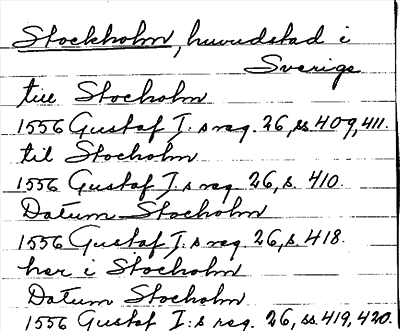 Stockholm, huvudstad i
Sverige
till Stocholm
1556 Gustaf I:s reg. 26, ss. 409, 411.
til Stocholm
1556 Gustaf I:s reg. 26, s. 410.
Datum Stocholm
1556 Gustaf I:s reg. 26, s. 418.
her i Stocholm
Datum Stocholm
1556 Gustaf I:s reg. 26, ss. 419, 420.